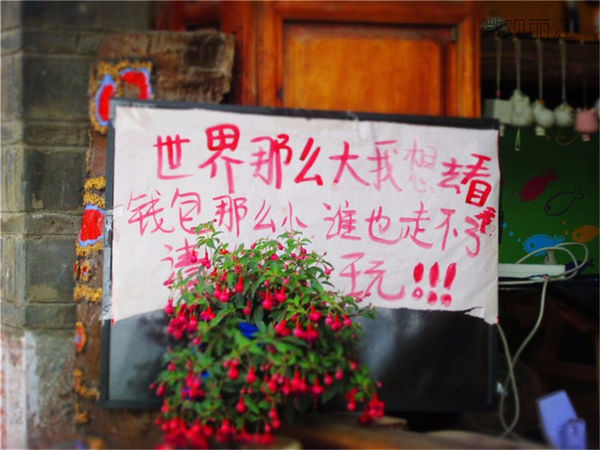 微观丽江
世界那么大我想去看看
钱包那么小 谁也走不了
请 玩!!!